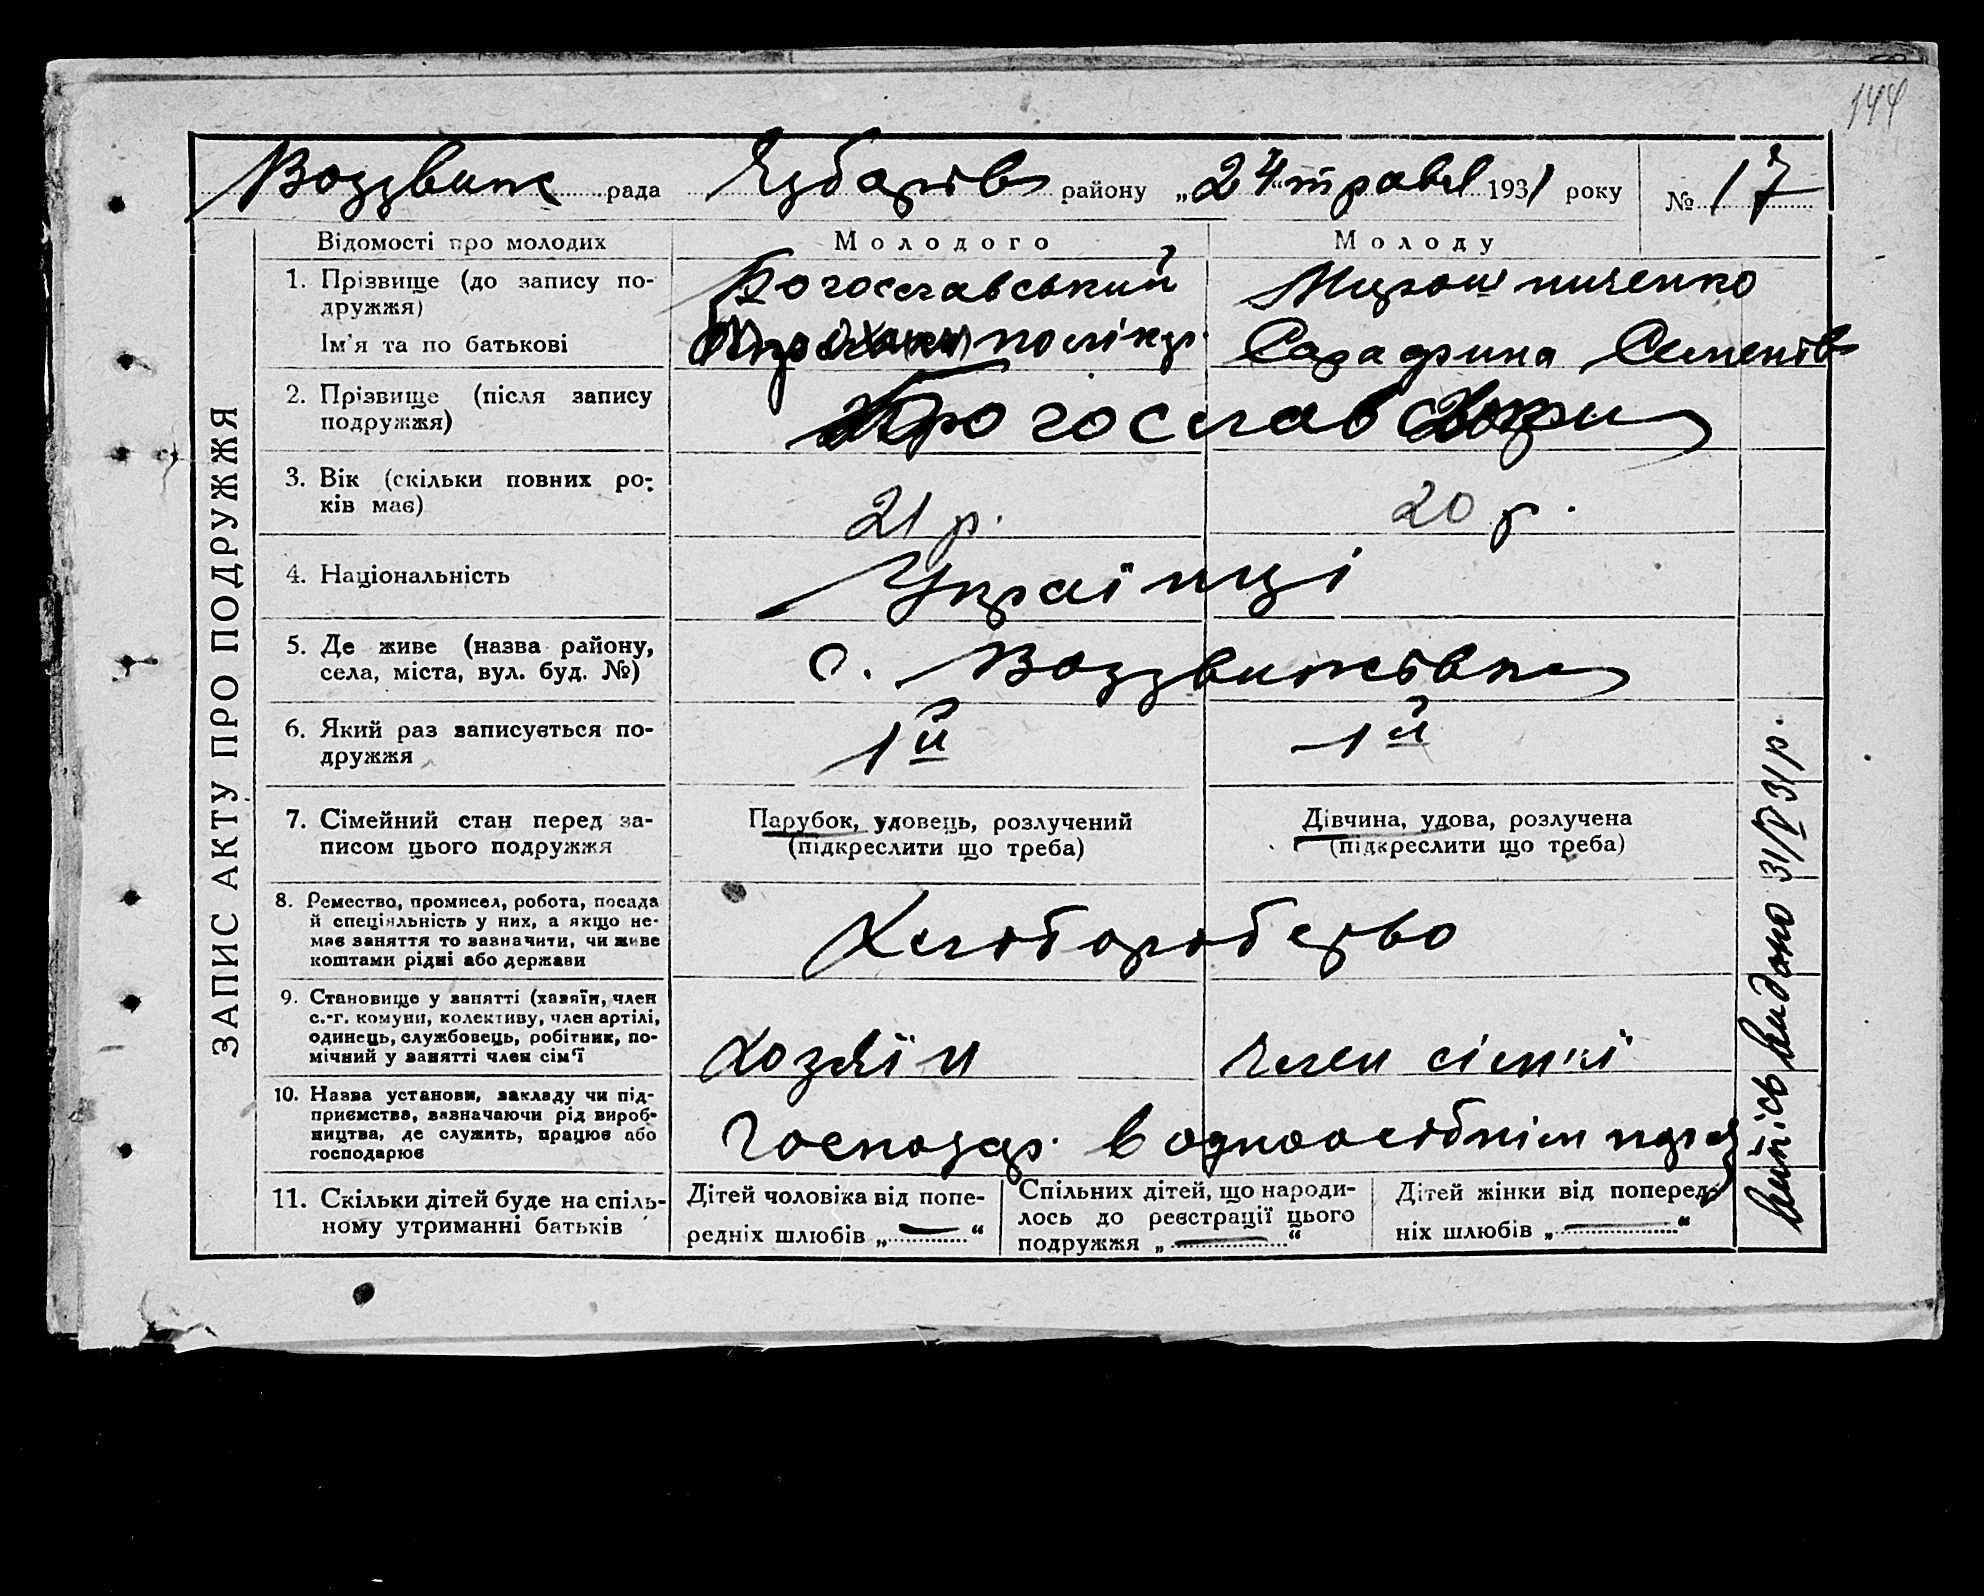 144
Воздвиж рада Ямбурзів району „24“ травня 1931 року № 17
ЗАПИС АКТУ ПРО ПОДРУЖЖЯ
Відомості про молодих Молодого Молоду
1. Прізвище (до запису по-
дружжя) Богославський Мирошниченко
Ім'я та по батькові Серафима Семенів
2. Прізвище (після запису
подружжя) Богославськи
3. Вік (скільки повних ро-
ків має) 21 р. 20 р.
4. Національність Українці
5. Де живе (назва району,
села, міста, вул. буд. №) с. Воздвиживка
6. Який раз записується по-
дружжя 1й 1й
7. Сімейний стан перед за-
писом цього подружжя
Парубок, удовець, розлучений
(підкреслити що треба)
Дівчина, удова, розлучена
(підкреслити що треба)
8. Ремество, промисел, робота, посада
й спеціяльність у них, а якщо не-
має заняття то зазначити, чи живе
коштами рідні або держави
Хліборобство
9. Становище у занятті (хазяїн, член
с.-г. комуни, колективу, член артілі,
одинець, службовець, робітник, по-
мічний у занятті член сім'ї
хозяїн член сімньї
10. Назва установи, закладу чи під-
приємства, зазначаючи рід вироб-
ництва, де служить, працює або
господарює
Господар. в одноосібнім
11. Скільки дітей буде на спіль-
ному утриманні батьків
Дітей чоловіка від попе-
редніх шлюбів „—“
Спільних дітей, що народи-
лось до реєстрації цього
подружжя „—“
Дітей жінки від поперед-
ніх шлюбів „—“
випись видано 31/V 31 р.